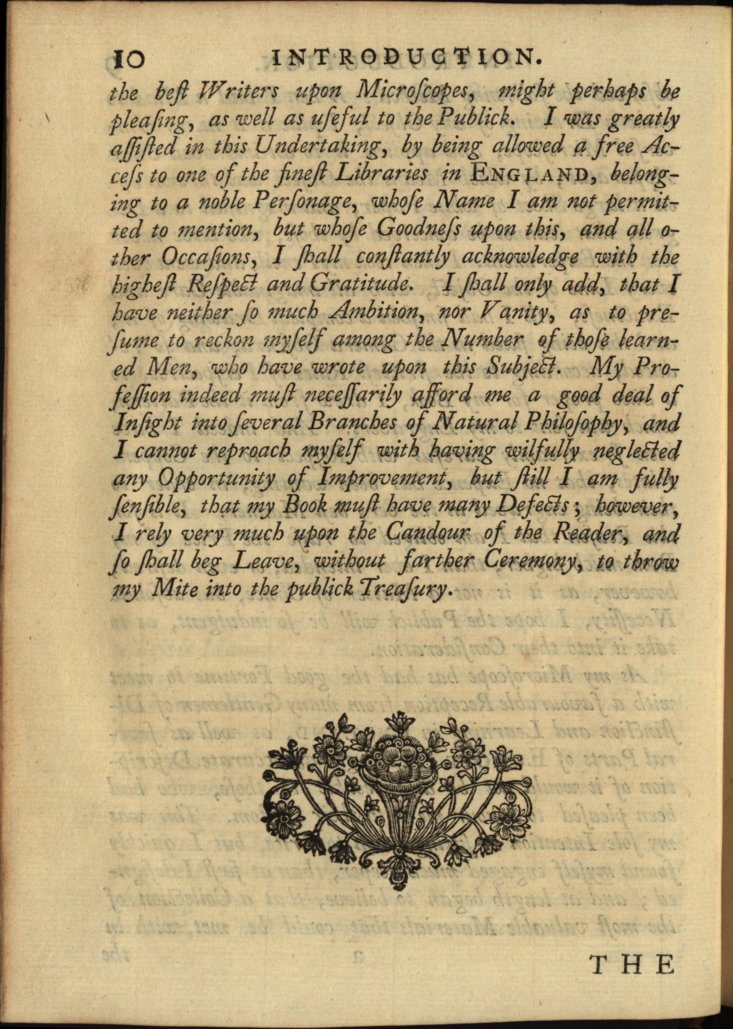 10 INTRODUCTION.
the beſt Writers upon Microſcopes, might perhaps be
pleaſing, as well as uſeful to the Publick. I was greatly
aſſiſted in this Undertaking, by being allowed a free Ac-
ceſs to one of the fineſt Libraries in ENGLAND, belong-
ing to a noble Perſonage, whoſe Name I am not permit-
ted to mention, but whoſe Goodneſs upon this, and all o-
ther Occaſions, I ſhall conſtantly acknowledge with the
higheſt Reſpect and Gratitude. I ſhall only add, that I
have neither ſo much Ambition, nor Vanity, as to pre-
ſume to reckon myſelf among the Number of thoſe learn-
ed Men, who have wrote upon this Subject. My Pro-
feſſion indeed muſt neceſſarily afford me a good deal of
Inſight into ſeveral Branches of Natural Philoſophy, and
I cannot reproach myſelf with having wilfully neglected
any Opportunity of Improvement, but ſtill I am fully
ſenſible, that my Book muſt have many Defects; however,
I rely very much upon the Candour of the Reader, and
ſo ſhall beg Leave, without farther Ceremony, to throw
my Mite into the publick Treaſury.
THE